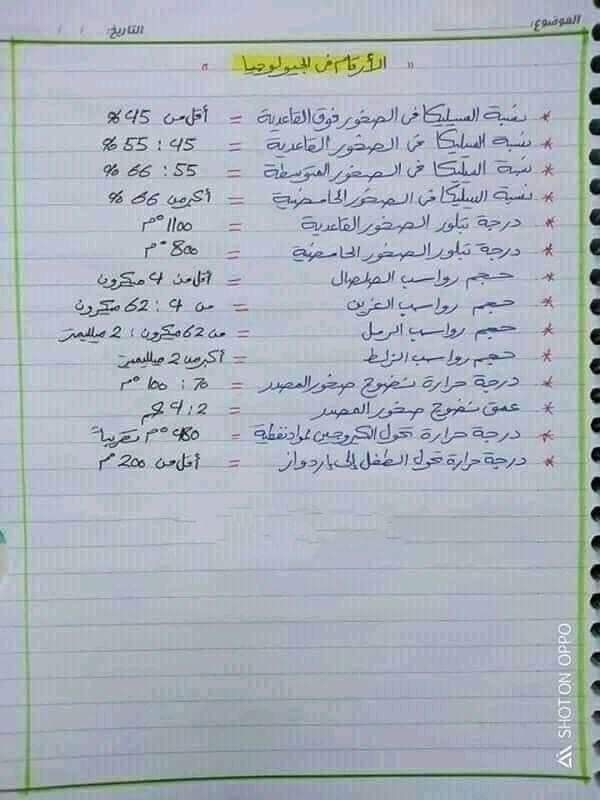 الموضوع: التاريخ: / /
" الأرقام فى الجيولوجيا "
* نسبة السيليكا فى الصخور فوق القاعدية = أقل من 45 %
* نسبة السيليكا فى الصخور القاعدية = 45 : 55 %
* نسبة السليكا فى الصخور المتوسطة = 55 : 66 %
* نسبة السيليكا فى الصخور الحامضية = أكبر من 66 %
* درجة تبلور الصخور القاعدية = 1100 °م
* درجة تبلور الصخور الحامضية = 800 °م
* حجم رواسب الصلصال = أقل من 4 ميكرون
* حجم رواسب الغرين = من 4 : 62 ميكرون
* حجم رواسب الرمل = من 62 ميكرون : 2 ميلليمتر
* حجم رواسب الزلط = أكبر من 2 ميلليمتر
* درجة حرارة نضوج صخور المصدر = 70 : 100 °م
* عمق نضوج صخور المصدر = 2 : 4 كم
* درجة حرارة تحول الكيروجين لمواد نفطية = 480 °م تقريباً
* درجة حرارة تحول الطفل إلى إردواز = أقل من 200 °م
SHOT ON OPPO